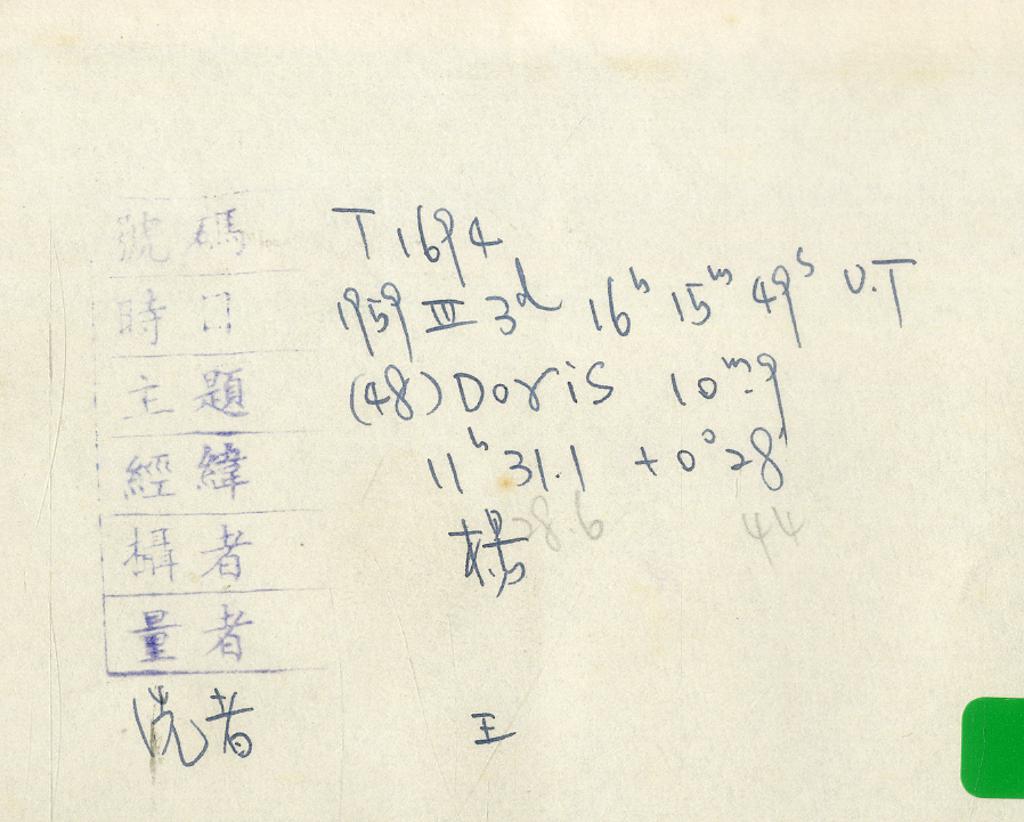 號碼 T 1694
時日 1959 III 3ᵈ 16ʰ 15ᵐ 49ˢ U.T
主題 (48) Doris 10ᵐ.9
經緯 11ʰ 31.1 +0°28'
28.6 44
攝者 楊
量者
洗者 王